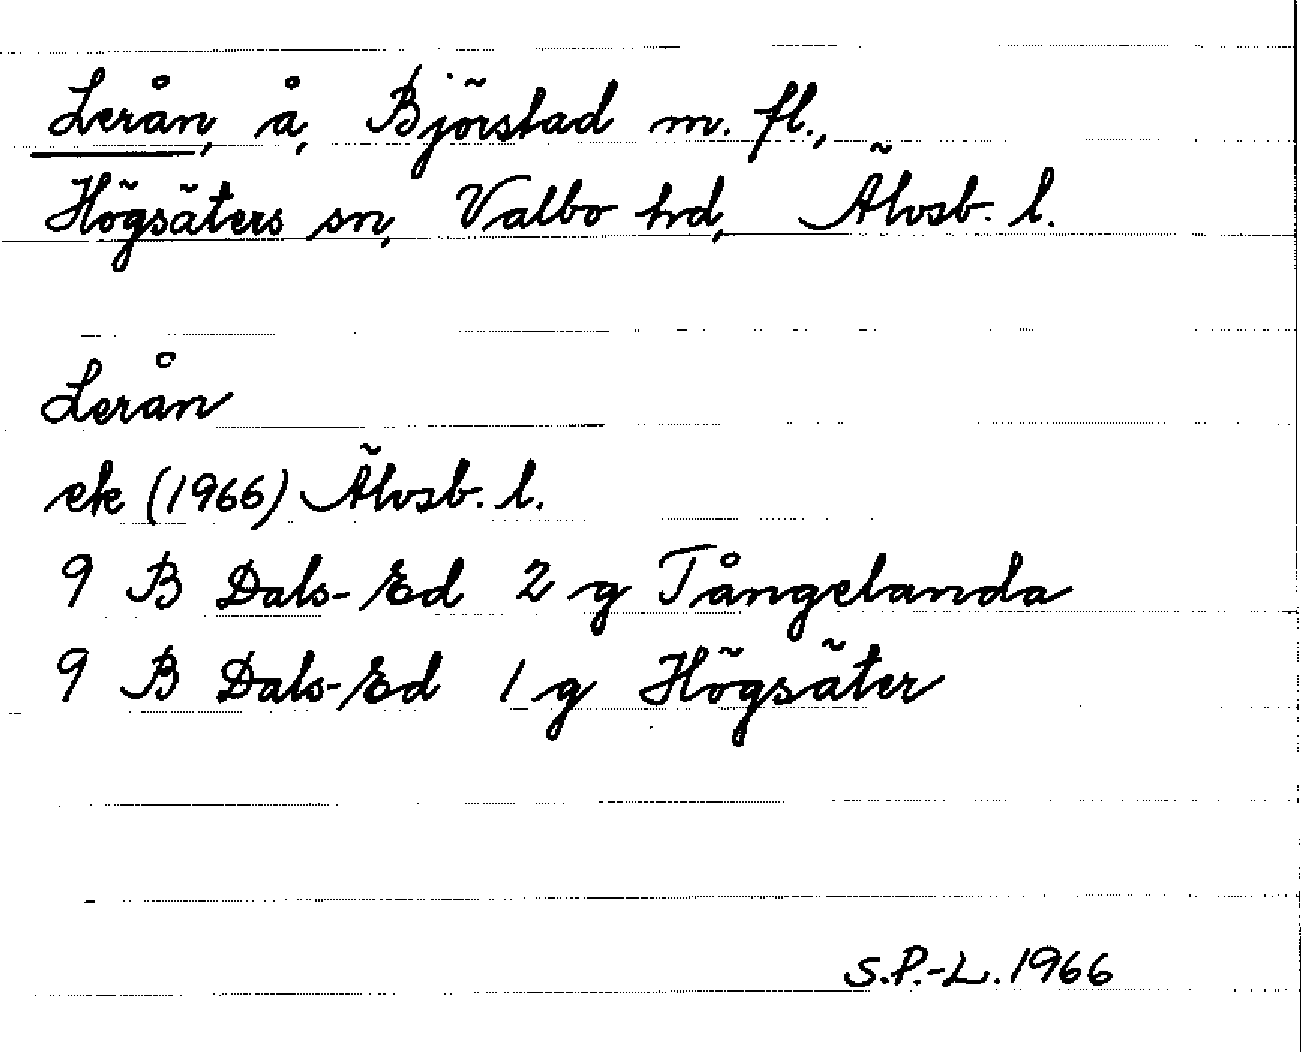 Lerån, å, Björstad m. fl.,
Högsäters sn, Valbo hd, Älvsb. l.
Lerån
ek (1966) Älvsb. l.
9 B Dals-Ed 2 g Tångelanda
9 B Dals-Ed 1 g Högsäter
S.P.-L. 1966